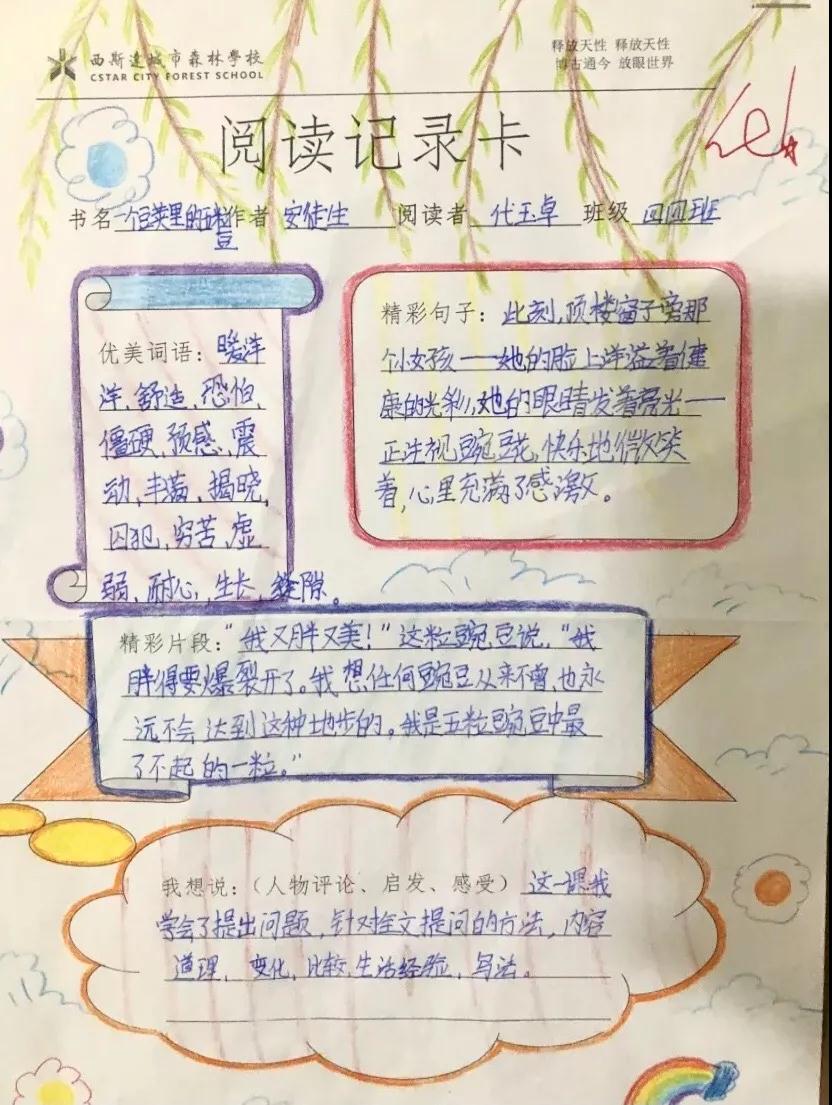 西斯达城市森林學校
CSTAR CITY FOREST SCHOOL
释放天性 释放天性
博古通今 放眼世界
阅读记录卡
书名一个豆荚里的五粒豆 作者 安徒生 阅读者 代玉卓 班级 四四班
优美词语：暖洋
洋，舒适，恐怕，
僵硬，预感，震
动，丰满，揭晓，
囚犯，穷苦，虚
弱，耐心，生长，缝隙。
精彩句子：此刻，顶楼窗子旁那
个小女孩——她的脸上洋溢着健
康的光彩，她的眼睛发着亮光——
正注视豌豆花，快乐地微笑
着，心里充满了感激。
精彩片段：“我又胖又美！”这粒豌豆说，“我
胖得要爆裂开了。我想任何豌豆从来不曾，也永
远不会达到这种地步的。我是五粒豌豆中最
了不起的一粒。”
我想说：（人物评论、启发、感受）这一课我
学会了提出问题，针对全文提问的方法，内容
道理，变化，比较，生活经验，写法。